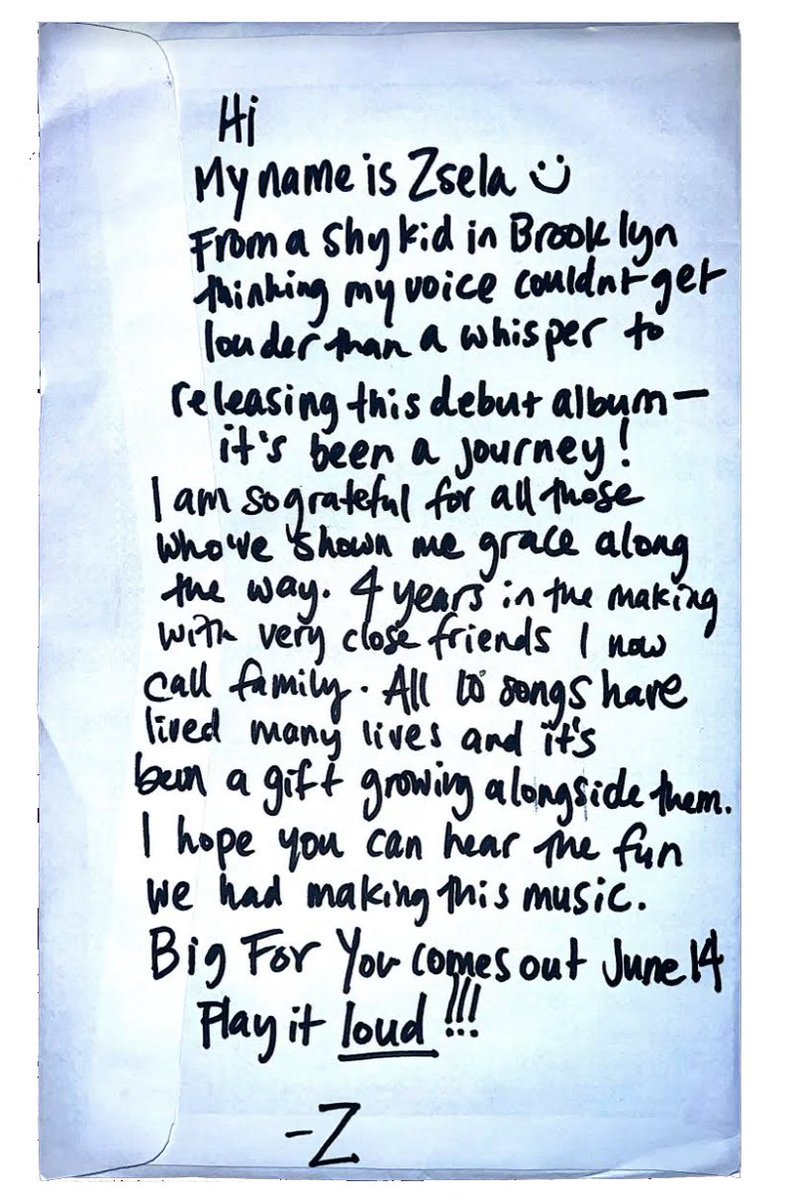 Hi
My name is Zsela :)
From a shy kid in Brooklyn
thinking my voice couldnt get
louder than a whisper to
releasing this debut album—
it's been a journey!
I am so grateful for all those
who've shown me grace along
the way. 4 years in the making
with very close friends I now
call family. All 10 songs have
lived many lives and it's
been a gift growing alongside them.
I hope you can hear the fun
we had making this music.
Big For You comes out June 14
Play it loud!!!
-Z